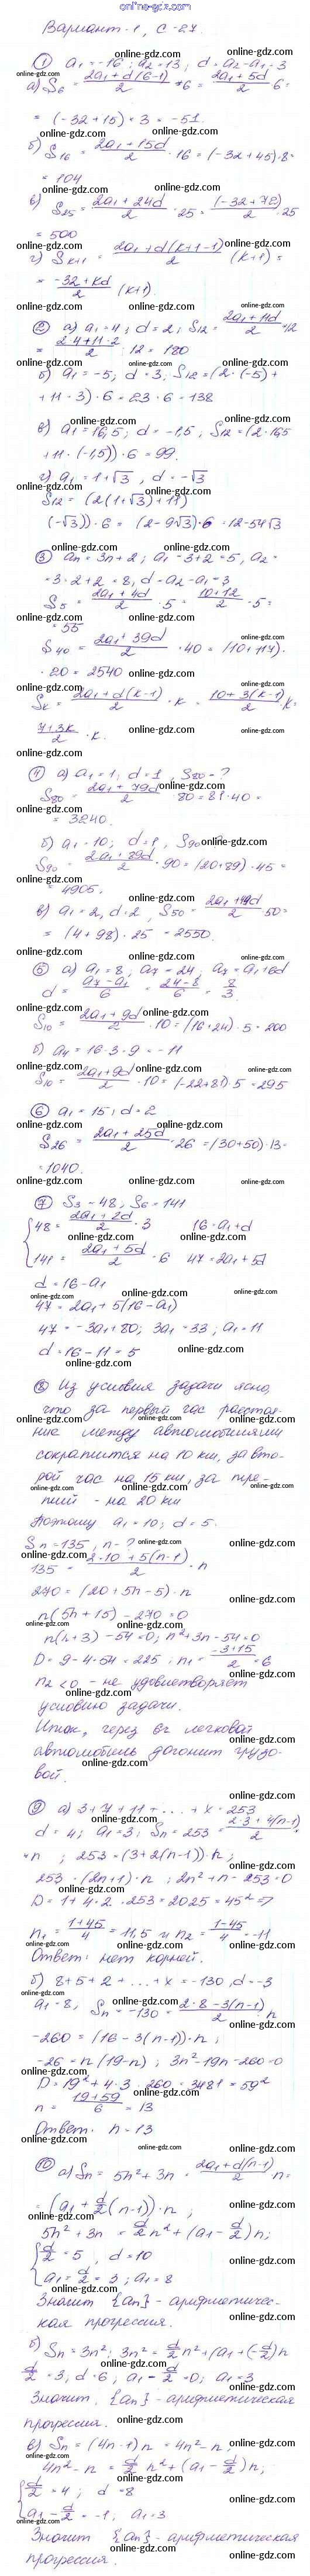 online-gdz.com
Вариант-1, С-27
① a₁ = -16; a₂ = 13; d = a₂ - a₁ = 3
а) S₆ = (2a₁ + d(6-1))/2 · 6 = (2a₁ + 5d)/2 · 6 =
= (-32 + 15) · 3 = -51.
б) S₁₆ = (2a₁ + 15d)/2 · 16 = (-32 + 45) · 8 =
= 104
в) S₂₅ = (2a₁ + 24d)/2 · 25 = ((-32 + 72))/2 · 25
= 500
г) Sₖ₊₁ = (2a₁ + d(k+1-1))/2 (k+1) =
= (-32 + kd)/2 (k+1).
② а) a₁ = 4; d = 2; S₁₂ = (2a₁ + 11d)/2 · 12
= (2·4 + 11·2)/2 · 12 = 180
б) a₁ = -5; d = 3; S₁₂ = (2·(-5) +
+ 11·3) · 6 = 23 · 6 = 138
в) a₁ = 16,5; d = -1,5; S₁₂ = (2·16,5
+ 11·(-1,5)) · 6 = 99.
г) a₁ = 1+√3, d = -√3
S₁₂ = (2(1+√3) + 11)
(-√3)) · 6 = (2 - 9√3) · 6 = 12 - 54√3
③ aₙ = 3n + 2; a₁ = 3 + 2 = 5, a₂ =
= 3·2 + 2 = 8, d = a₂ - a₁ = 3
S₅ = (2a₁ + 4d)/2 · 5 = (10 + 12)/2 · 5 =
= 55
S₄₀ = (2a₁ + 39d)/2 · 40 = (10 + 117) ·
· 20 = 2540
Sₖ = (2a₁ + d(k-1))/2 · k = (10 + 3(k-1))/2 · k =
(7 + 3k)/2 · k.
④ а) a₁ = 1; d = 1, S₈₀ - ?
S₈₀ = (2a₁ + 79d)/2 · 80 = 81 · 40 =
= 3240.
б) a₁ = 10; d = 1, S₉₀ - ?
S₉₀ = (2a₁ + 89d)/2 · 90 = (20 + 89) · 45 =
= 4905.
в) a₁ = 2, d = 2, S₅₀ = (2a₁ + 49d)/2 · 50 =
= (4 + 98) · 25 = 2550.
⑤ а) a₁ = 8, a₇ = 24, a₇ = a₁ + 6d
d = (a₇ - a₁)/6 = (24 - 8)/6 = 8/3.
S₁₀ = (2a₁ + 9d)/2 · 10 = (16 + 24) · 5 = 200
б) a₁ = 16 - 3·9 = -11
S₁₀ = (2a₁ + 9d)/2 · 10 = (-22 + 81) · 5 = 295
⑥ a₁ = 15; d = 2
S₂₆ = (2a₁ + 25d)/2 · 26 = (30 + 50) · 13 =
= 1040.
⑦ S₃ = 48; S₆ = 141
48 = (2a₁ + 2d)/2 · 3 16 = a₁ + d
141 = (2a₁ + 5d)/2 · 6 47 = 2a₁ + 5d
d = 16 - a₁
47 = 2a₁ + 5(16 - a₁)
47 = -3a₁ + 80; 3a₁ = 33; a₁ = 11
d = 16 - 11 = 5
⑧ Из условия задачи ясно,
что за первый час расстоя-
ние между автомобилями
сократится на 10 км, за вто-
рой час на 15 км, за тре-
тий - на 20 км
Поэтому a₁ = 10; d = 5.
Sₙ = 135, n - ?
135 = (2·10 + 5(n-1))/2 · n
270 = (20 + 5n - 5) · n
n(5n + 15) - 270 = 0
n(n+3) - 54 = 0; n² + 3n - 54 = 0
D = 9 - 4·54 = 225; n₁ = (-3+15)/2 = 6
n₂ < 0 - не удовлетворяет
условию задачи.
Итак, через 6ч легковой
автомобиль догонит грузо-
вой.
⑨ а) 3 + 7 + 11 + ... + x = 253
d = 4; a₁ = 3; Sₙ = 253 = (2·3 + 4(n-1))/2 ·
· n; 253 = (3 + 2(n-1)) · n;
253 = (2n+1) · n; 2n² + n - 253 = 0
D = 1 + 4·2·253 = 2025 = 45² ⇒
n₁ = (1+45)/4 = 11,5 и n₂ = (1-45)/4 = -11
Ответ: нет корней.
б) 8 + 5 + 2 + ... + x = -130, d = -3
a₁ = 8, Sₙ = -130 = (2·8 - 3(n-1))/2 n
-260 = (16 - 3(n-1)) · n;
-26 = n(19-n); 3n² - 19n - 260 = 0
D = 19² + 4·3·260 = 3481 = 59²
n = (19+59)/6 = 13
Ответ: n = 13
⑩ а) Sₙ = 5n² + 3n = (2a₁ + d(n-1))/2 n =
= (a₁ + d/2 (n-1)) · n;
5n² + 3n = d/2 n² + (a₁ - d/2) n;
d/2 = 5, d = 10
a₁ - d/2 = 3; a₁ = 8
Значит {aₙ} - арифметичес-
кая прогрессия.
б) Sₙ = 3n²; 3n² = d/2 n² + (a₁ + (-d/2) n
d/2 = 3; d = 6; a₁ - d/2 = 0; a₁ = 3
Значит, {aₙ} - арифметическая
прогрессия.
в) Sₙ = (4n-1) n = 4n² - n;
4n² - n = d/2 n² + (a₁ - d/2) n;
d/2 = 4; d = 8
a₁ - d/2 = -1; a₁ = 3
Значит {aₙ} - арифметическая
прогрессия.